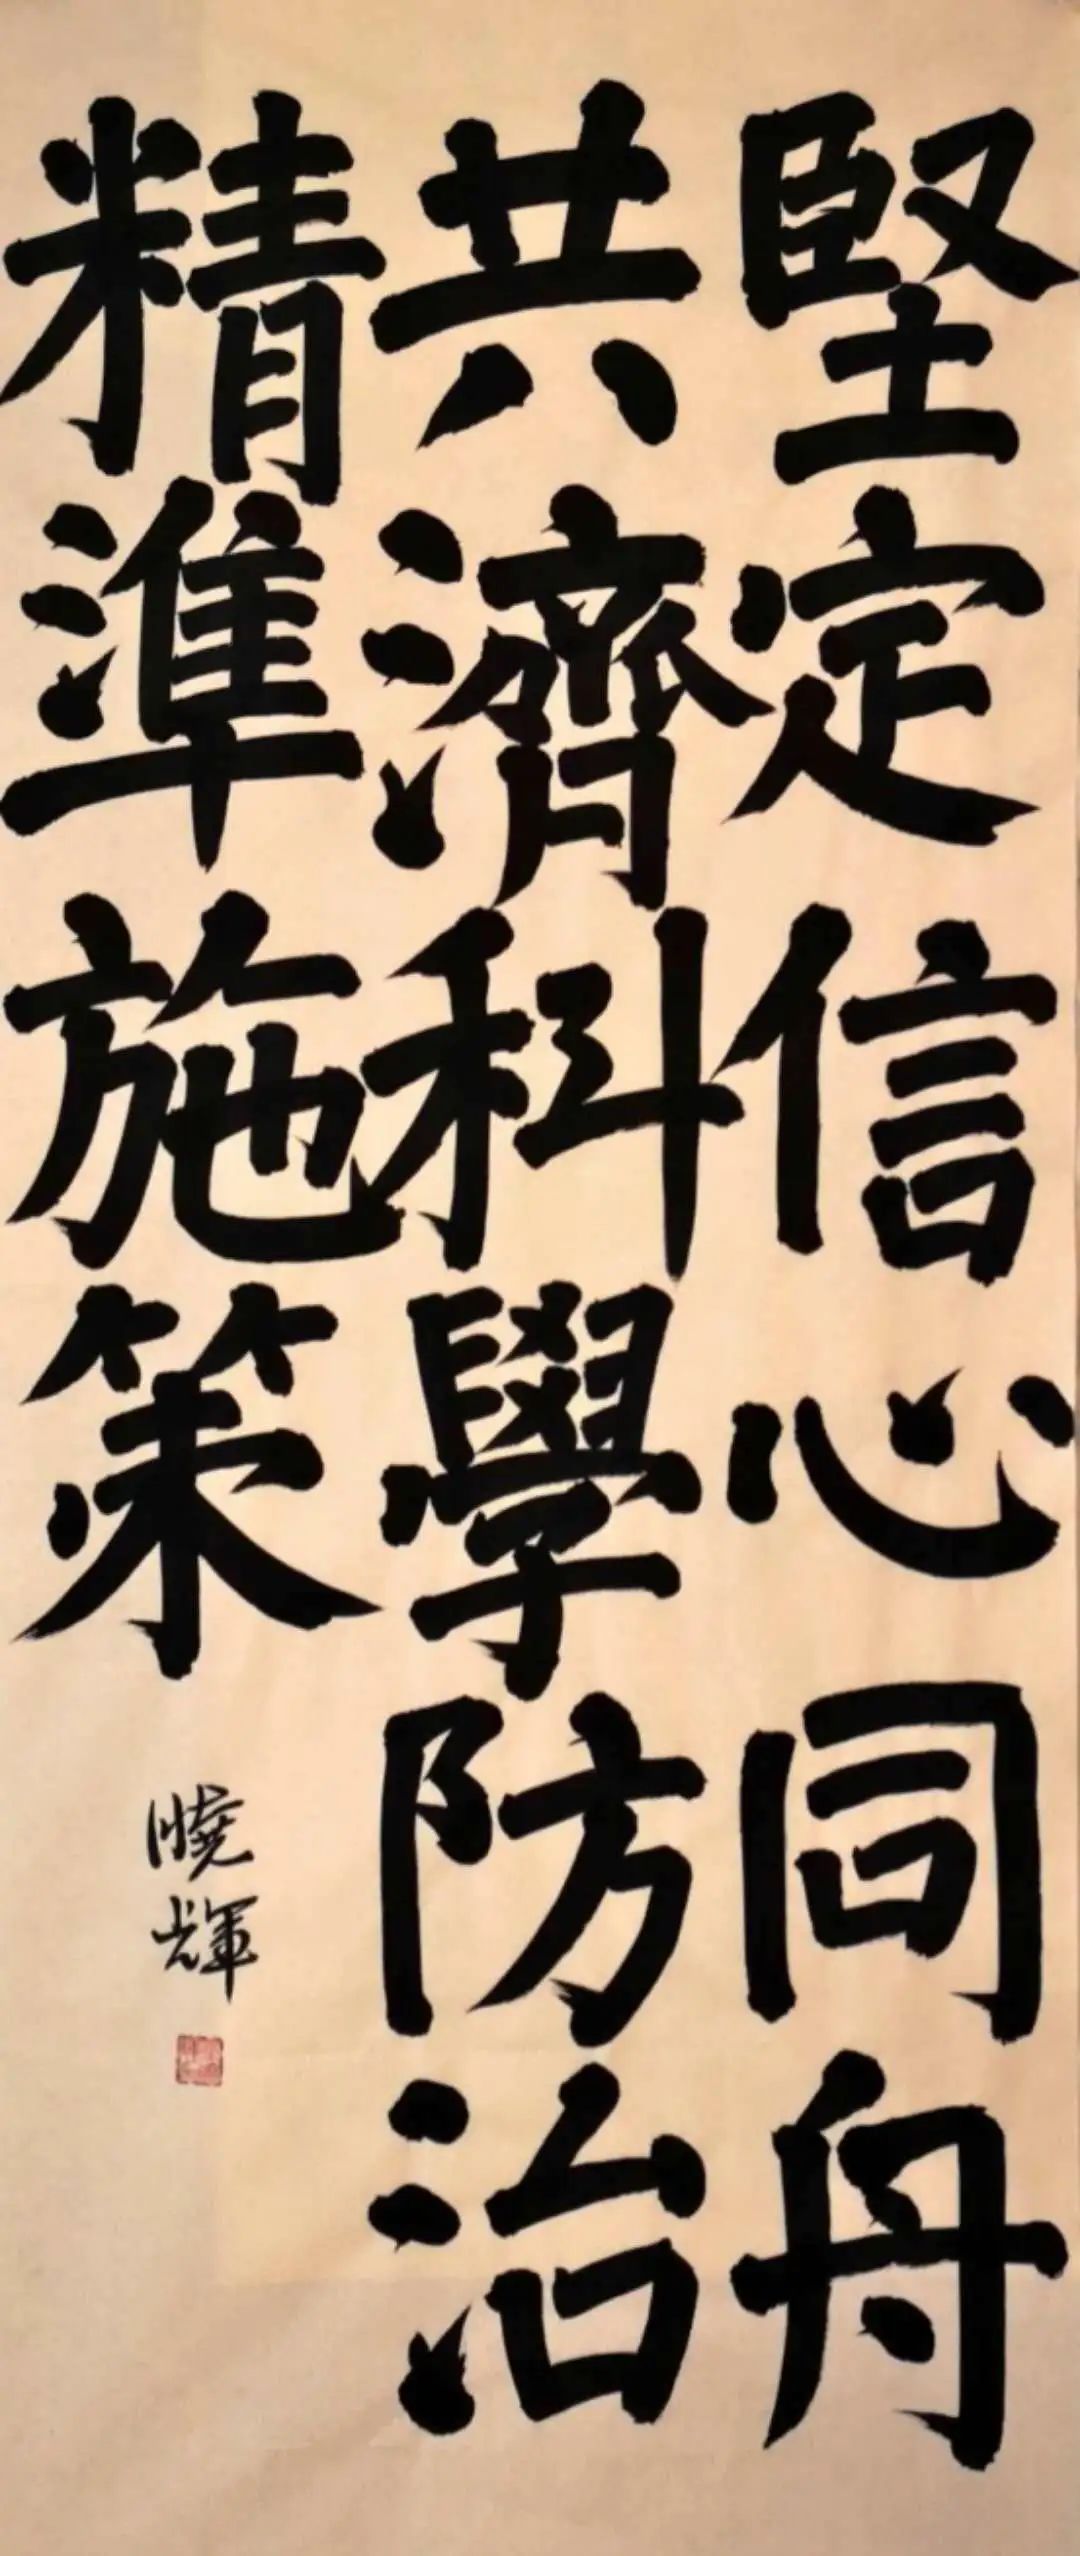 堅定信心同舟
共濟科學防治
精準施策
曉輝